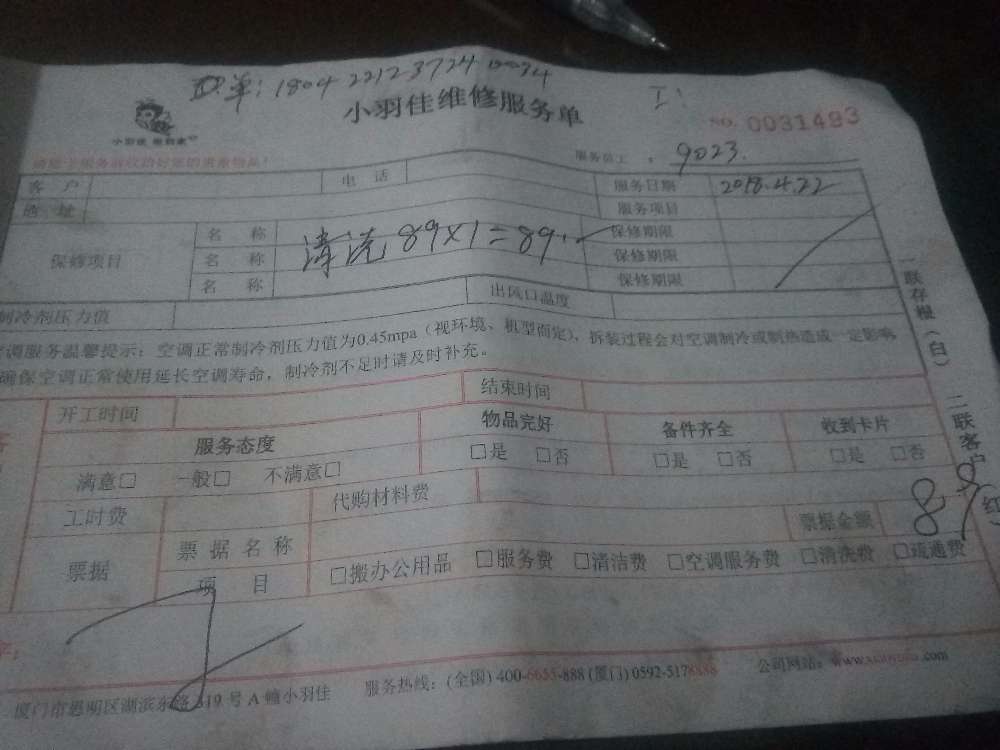 单：1804 22123724 0094
小羽佳维修服务单
NO. 0031493
小羽佳
服务员工：9023.
客户 电话 服务日期 2018.4.22
地址 服务项目
保修项目 名称 保修期限
清洗 89×1=89.
名称 保修期限
名称 保修期限
制冷剂压力值 出风口温度
空调服务温馨提示：空调正常制冷剂压力值为0.45mpa（视环境、机型而定），拆装过程会对空调制冷或制热造成一定影响
确保空调正常使用延长空调寿命，制冷剂不足时请及时补充。
一联存根（白） 二联客户（红）
开工时间 结束时间
服务态度 物品完好 备件齐全 收到卡片
满意□ 一般□ 不满意□ □是 □否 □是 □否 □是 □否
工时费 代购材料费
票据 票据名称 票据金额 89
项目 □搬办公用品 □服务费 □清洁费 □空调服务费 □清洗费 □疏通费
厦门市思明区湖滨东路319号A幢小羽佳 服务热线：(全国) 400-6655-888 (厦门) 0592-5178886 公司网站：